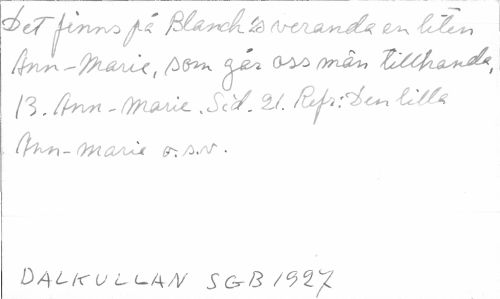 Det finns på Blanch's veranda en liten
Ann-Marie, som går oss män tillhanda,
13. Ann-Marie. Sid. 21. Refr: Den lilla
Ann-Marie o.s.v.
DALKULLAN SGB 1927